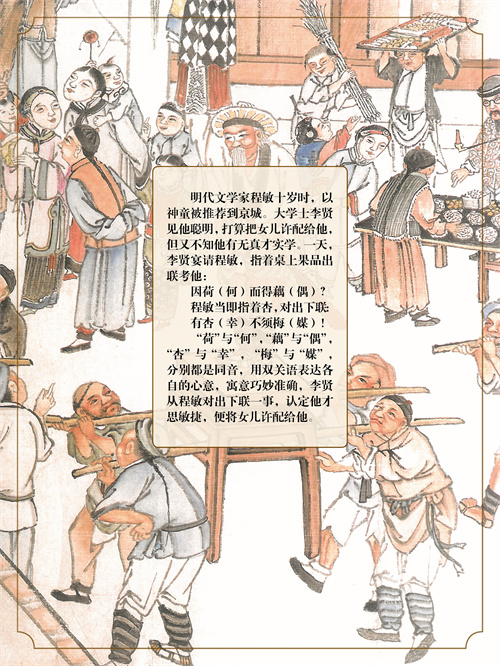 明代文学家程敏十岁时，以
神童被推荐到京城。大学士李贤
见他聪明，打算把女儿许配给他，
但又不知他有无真才实学。一天，
李贤宴请程敏，指着桌上果品出
联考他：
因荷（何）而得藕（偶）？
程敏当即指着杏，对出下联：
有杏（幸）不须梅（媒）！
“荷”与“何”，“藕”与“偶”，
“杏”与“幸”，“梅”与“媒”，
分别都是同音，用双关语表达各
自的心意，寓意巧妙准确，李贤
从程敏对出下联一事，认定他才
思敏捷，便将女儿许配给他。